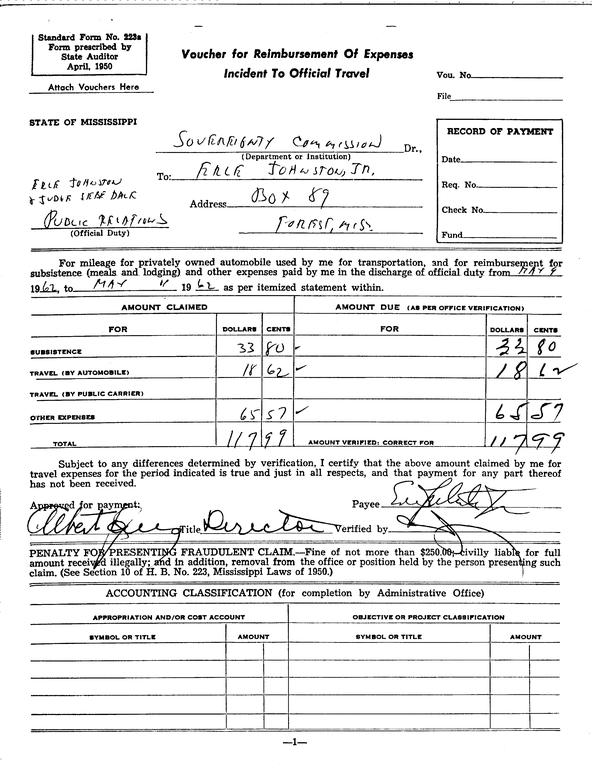 Standard Form No. 223a
Form prescribed by
State Auditor
April, 1950
Attach Vouchers Here
Voucher for Reimbursement Of Expenses
Incident To Official Travel
Vou. No.
File
STATE OF MISSISSIPPI
RECORD OF PAYMENT
Date
Req. No.
Check No.
Fund
SOVEREIGNTY COMMISSION Dr.,
(Department or Institution)
To: ERLE JOHNSTON, JR.
Address BOX 89
FOREST, MISS.
ERLE JOHNSTON
& JUDGE
PUBLIC RELATIONS
(Official Duty)
For mileage for privately owned automobile used by me for transportation, and for reimbursement for
subsistence (meals and lodging) and other expenses paid by me in the discharge of official duty from MAY 9
1962, to MAY 11 1962 as per itemized statement within.
AMOUNT CLAIMED AMOUNT DUE (AS PER OFFICE VERIFICATION)
FOR DOLLARS CENTS FOR DOLLARS CENTS
SUBSISTENCE 33 80 33 80
TRAVEL (BY AUTOMOBILE) 18 62 18 62
TRAVEL (BY PUBLIC CARRIER)
OTHER EXPENSES 65 57 65 57
TOTAL 117 99 AMOUNT VERIFIED: CORRECT FOR 117 99
Subject to any differences determined by verification, I certify that the above amount claimed by me for
travel expenses for the period indicated is true and just in all respects, and that payment for any part thereof
has not been received.
Approved for payment: Payee
Albert Title Director Verified by
PENALTY FOR PRESENTING FRAUDULENT CLAIM.—Fine of not more than $250.00; civilly liable for full
amount received illegally; and in addition, removal from the office or position held by the person presenting such
claim. (See Section 10 of H. B. No. 223, Mississippi Laws of 1950.)
ACCOUNTING CLASSIFICATION (for completion by Administrative Office)
APPROPRIATION AND/OR COST ACCOUNT OBJECTIVE OR PROJECT CLASSIFICATION
SYMBOL OR TITLE AMOUNT SYMBOL OR TITLE AMOUNT
—1—